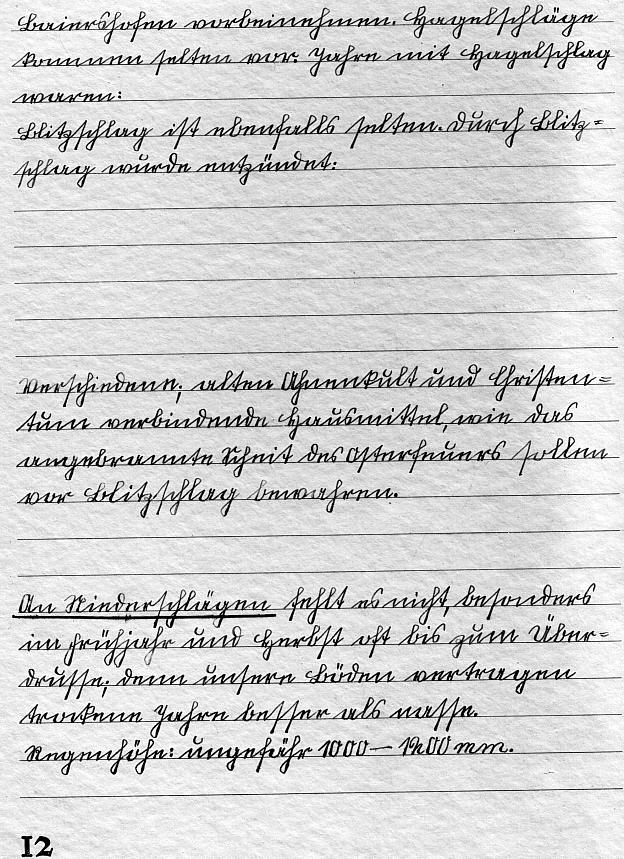 Baiershofen vorbeinehmen. Hagelschläge
kommen selten vor. Jahre mit Hagelschlag
waren:
Blitzschlag ist ebenfalls selten. Durch Blitz=
schlag wurde entzündet:
Verschiedene, alten Ahnenkult und Christen=
tum verbindende Hausmittel, wie das
angebrannte Scheit des Osterfeuers sollen
vor Blitzschlag bewahren.
An Niederschlägen fehlt es nicht, besonders
im Frühjahr und Herbst oft bis zum Über=
drusse; denn unsere Böden vertragen
trockene Jahre besser als nasse.
Regenhöhe: ungefähr 1000 — 1200 mm.
12